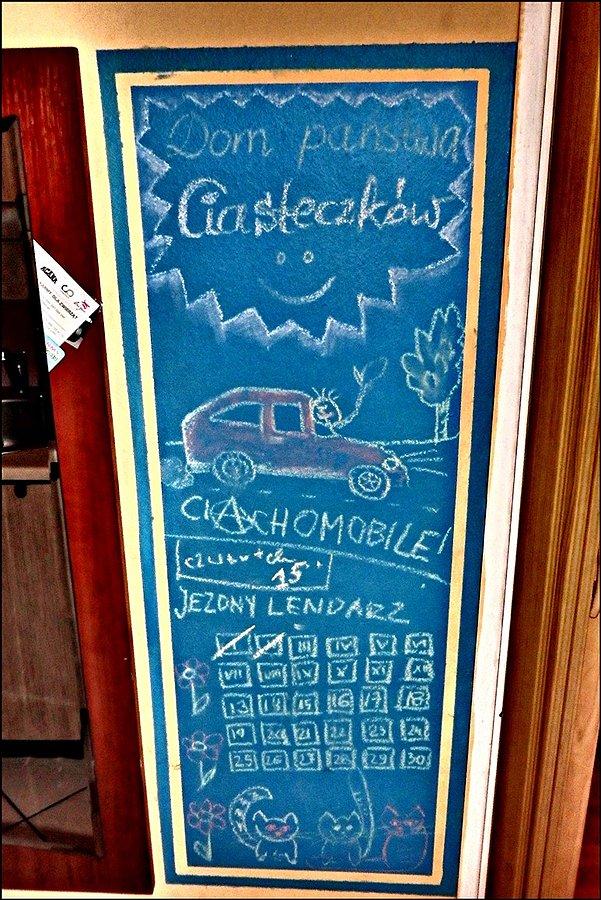 Dom państwa
Ciasteczków
CIACHOMOBILE!
czwartek
15
JEZDNY LENDARZ
III IV V VI
VII VIII IX X XI XII
13 14 15 16 17 18
19 20 21 22 23 24
25 26 27 28 29 30